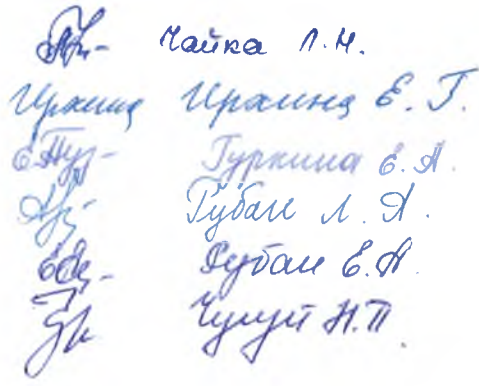 Чайка Л.Н.
Иркина Иркина Е.Г.
Гуркина Е.А.
Губан Л.А.
Губан Е.А.
Чугуй Н.П.